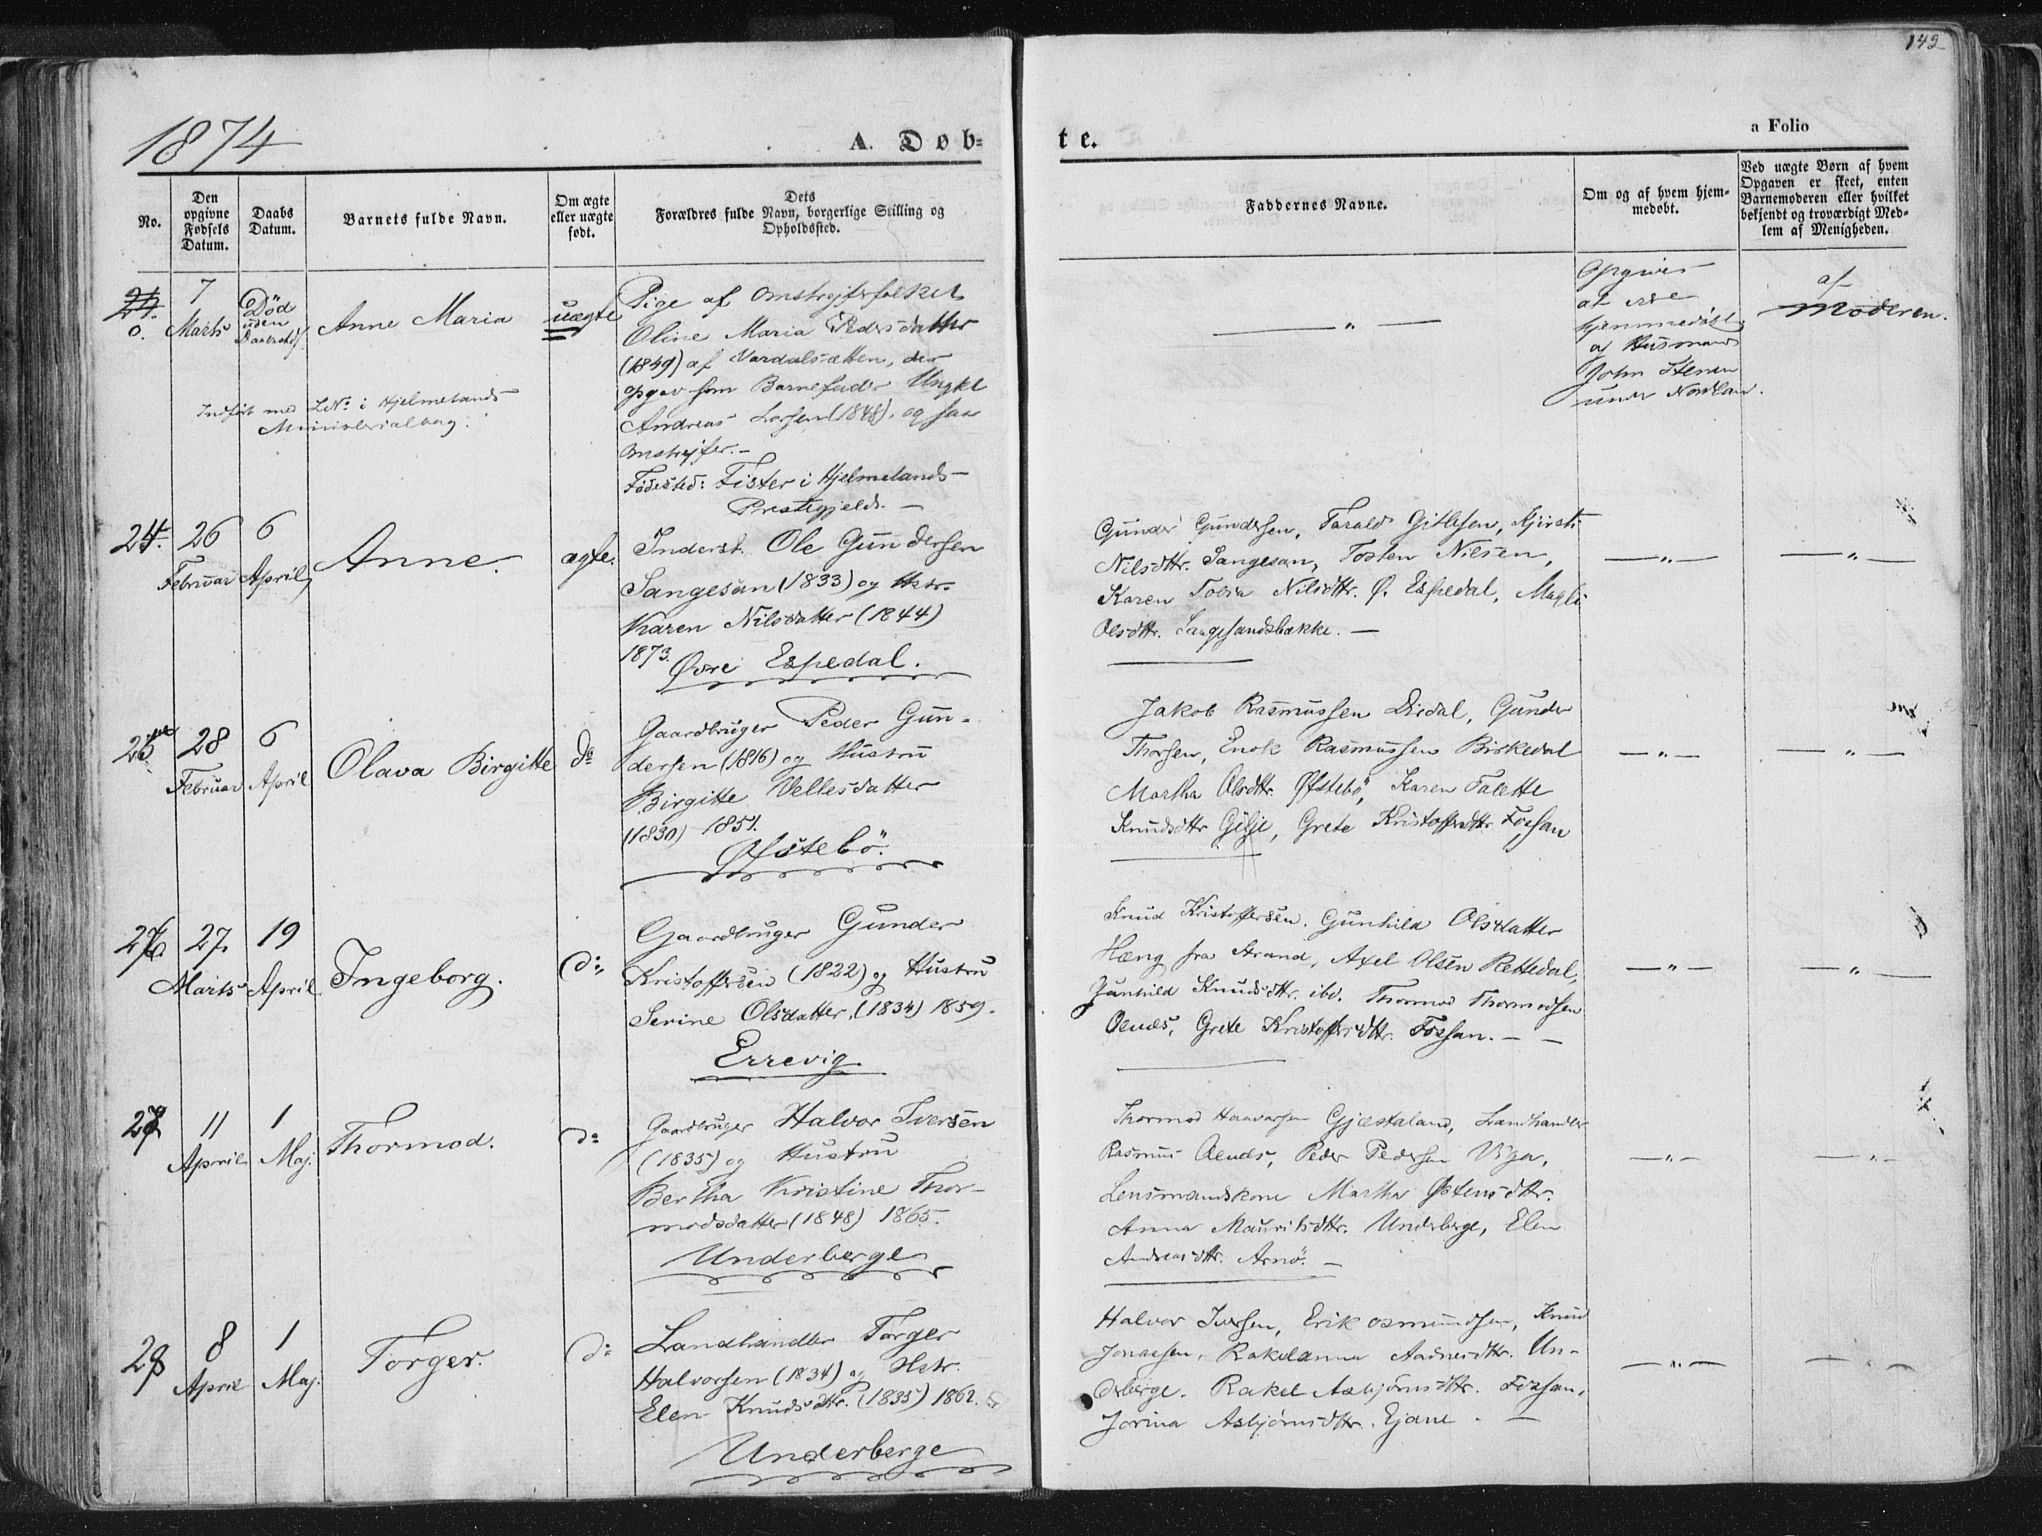 142
1874
A. Døb-
te.
a Folio
No.
Den
opgivne
Fødsels
Datum.
Daabs
Datum.
Barnets fulde Navn.
Om ægte
eller uægte
født.
Dets
Forældres fulde Navn, borgerlige Stilling og
Opholdssted.
Faddernes Navne.
Om og af hvem hjem-
medøbt.
Ved uægte Børn af hvem
Opgaven er skeet, enten
Barnemoderen eller hvilket
bekjendt og troværdigt Med-
lem af Menigheden.
24.
0.
7
Marts
Død
uden
Anne Maria
uægte
Pige af Omstrejferfolket
Oline Maria Pedersdatter
(1849) af Vardalsætten, der
opgav som Barnefader Ungkl
Andreas Larsen (1848), og saa
Omstrejfer. —
Fødested: Fister i Hjelmelands-
Prestegjeld. —
Indført med LNo: i Hjelmelands
Ministerialbog.
— " —
Opgives
at være
hjemmedøbt
af Husmand
John Stenen
under Nordlan.
af
Moderen.
24.
26
Februar
6
April
Anne.
ægte.
Inderst. Ole Gundersen
Sangesan (1833) og Hstr.
Karen Nilsdatter (1844)
1873.
Øvre Espedal.
Gunder Gundersen, Tarald Gitlesen, Kjirsti
Nilsdttr. Sangesan, Tosten Nilsen,
Karen Tobia Nilsdttr. Ø. Espedal, Magli
Olsdttr. Sangesandsbakke. —
— " —
— " —
25
28
Februar
6
April
Olava Birgitte
do
Gaardbruger Peder Gun-
dersen (1816) og Hustru
Birgitte Vellesdatter
(1830) 1851.
Øfstebö.
Jakob Rasmussen Diedal, Gunder
Thorsen, Enok Rasmussen Birkedal
Martha Olsdttr. Øfstebö, Karen Talette
Knudsdttr Gilje, Grete Kristoffersdttr Fossan
— " —
— " —
26.
27.
Marts
19
April
Ingeborg.
do:
Gaardbruger Gunder
Kristoffersen (1822) og Hustru
Serine Olsdatter, (1834) 1859.
Errevig
Knud Kristoffersen, Gunhild Olsdatter
Hæng fra Strand, Axel Olsen Rettedal,
Gunhild Knudsdttr. ibd. Thormod Thormodsen
Oends, Grete Kristoffersdttr. Fossan. — —
— " —
— " —
27
11
April
1
Maj.
Thormod.
do
Gaardbruger Halvor Iversen
(1835) og Hustru
Bertha Kristine Thor-
modsdatter (1848) 1865.
Underberge
Thormod Haavarsen Gjæstaland, Landhandler
Rasmus Oends, Peder Pedersen Viga,
Lensmandskone Martha Østensdttr.
Anna Mauritsdttr. Underberge, Elen
Andreasdttr. Arnö. —
— " —
— " —
28
8
April
1
Maj.
Torger.
do
Landhandler Torger
Halvorsen (1834) og Hstr.
Elen Knudsdttr. (1835) 1862.
Underberge
Halvor Iversen, Erik Osmundsen, Knud
Jonassen, Rakelanna Aadnesdttr. Un-
derberge. Rakel Asbjørnsdttr. Fossan,
Jorina Asbjørnsdttr. Ejane. —
— " —
— " —